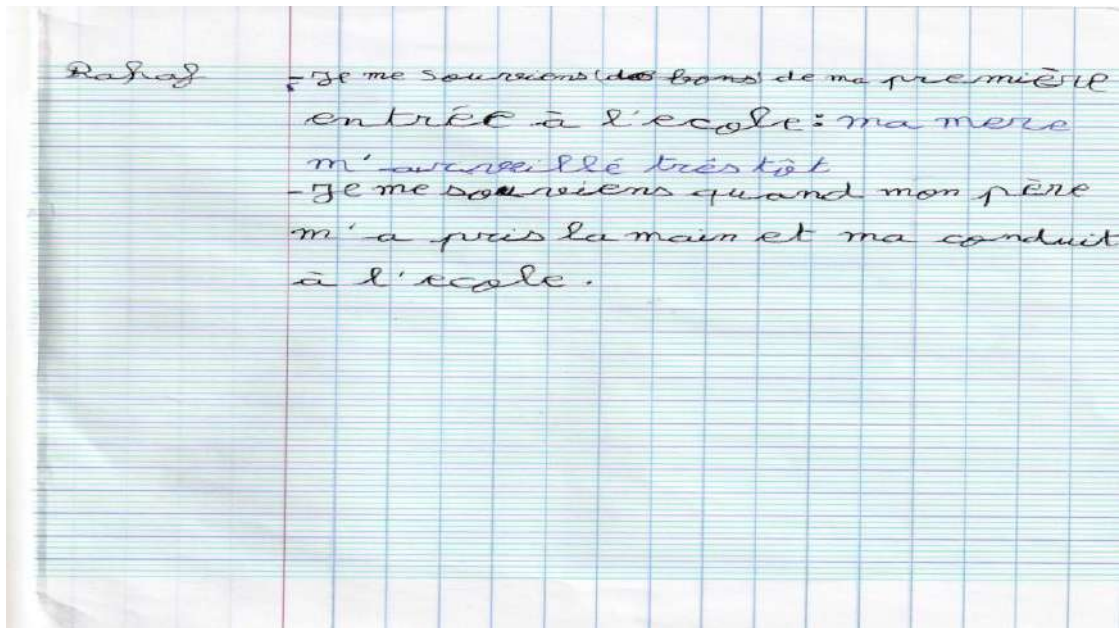 Rahaf - Je me souviens (des bons) de ma première
entrée à l'ecole: ma mere
m' très tôt
- Je me souviens quand mon père
m'a pris la main et ma conduit
à l'ecole.